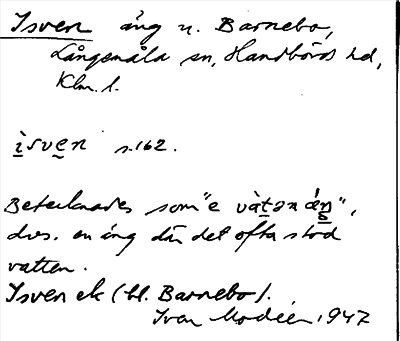 Isven äng u. Barnebo,
Långemåla sn, Handbörds hd,
Klm. l.
ìsven s. 162.
Betecknades som "e vàtən äŋ",
dvs. en äng där det ofta stod
vatten.
Isven ek (bl. Barnebo).
Ivar Modéer 1947